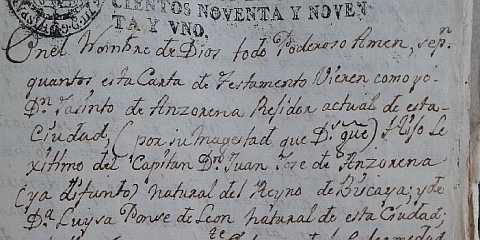 CIENTOS NOVENTA Y NOVEN
TA Y VNO.
Enel Nombre de Dios todo Poderoso Amen, sepn.
quantos esta Carta de Testamento Vieren como yo
Dn. Jasinto de Anzorena Residor actual de esta
Ciudad, (por su Magestad que Ds. gue) Hijo Le
xitimo del Capitan Dn. Juan Jose de Anzorena
(ya difunto) natural del Reyno de Biscaya; y de
Da. Luysa Ponse de Leon natural de esta Ciudad;